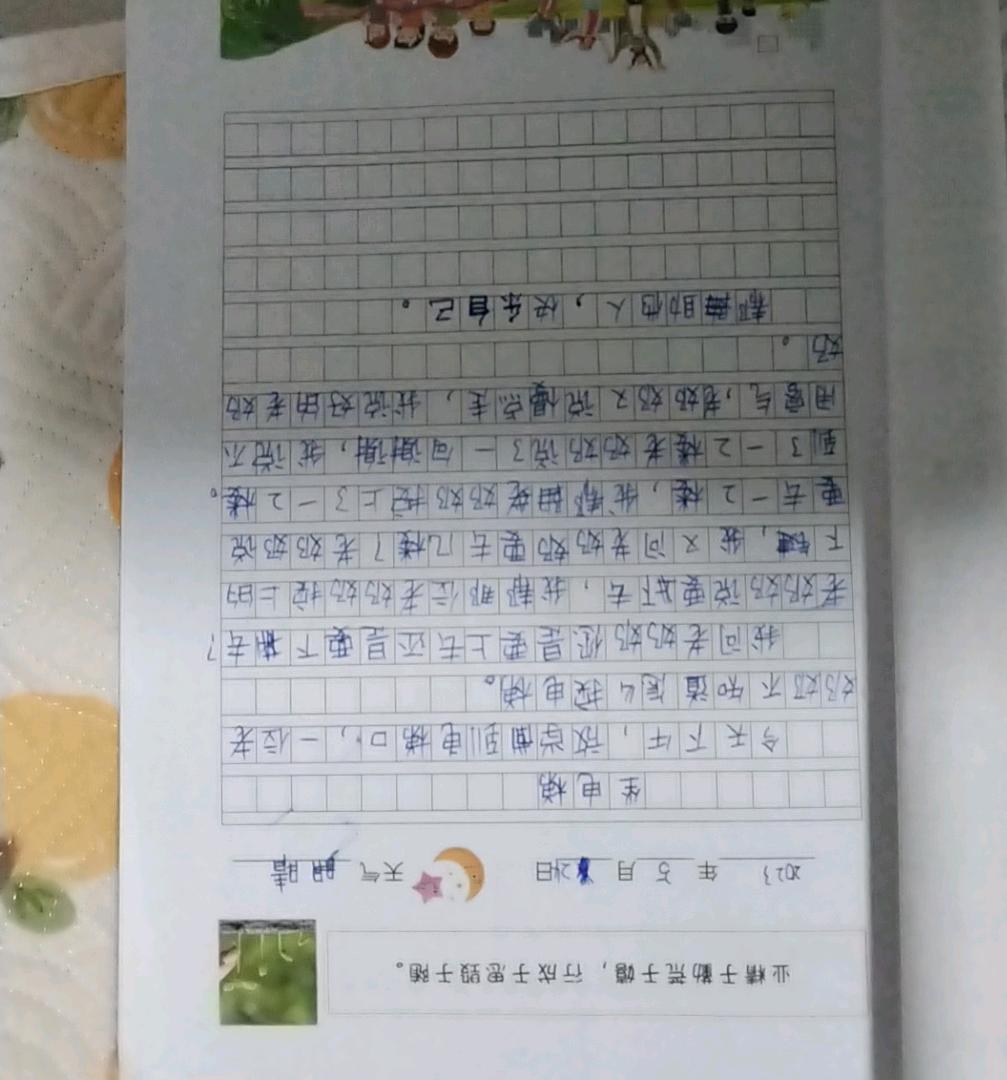 业精于勤荒于嬉，行成于思毁于随。
2023年5月24日 天气 晴
坐电梯
今天下午，放学回到电梯口，一位老
奶奶不知道怎么按电梯。
我问老奶奶您是要上去还是要下去？
老奶奶说要下去，我帮那位老奶奶按上的
下键，我又问老奶奶要去几楼？老奶奶说
要去一2楼，我帮老奶奶按上3一2楼。
到3一2楼老奶奶说3一句谢谢，我说不
用客气，老奶奶又说慢点走，我说好的老奶
奶。
帮助他人，快乐自己。